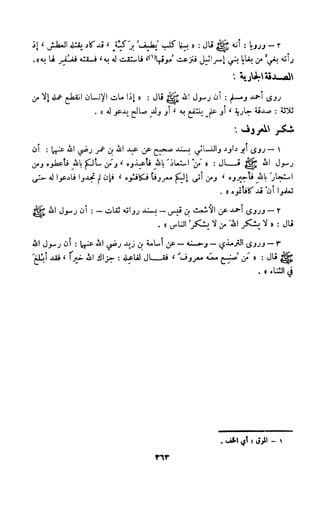 ٢ - ورويا : أنه ﷺ قال : « بينما كلب يُطيف بركيّة ، قد كاد يقتله العطش ، إذ
رأته بغيّ من بغايا بني إسرائيل فنزعت موقها(١) فاستقت له به ، فسقته فغُفِر لها به » .
الصدقة الجارية :
روى أحمد ومسلم : أن رسول الله ﷺ قال : « إذا مات الإنسان انقطع عمله إلا من
ثلاثة : صدقة جارية ، أو علم ينتفع به ، أو ولد صالح يدعو له » .
شكر المعروف :
١ - روى أبو داود والنسائي بسند صحيح عن عبد الله بن عمر رضي الله عنهما : أن
رسول الله ﷺ قال : « من استعاذ بالله فأعيذوه ، ومن سألكم بالله فأعطوه ، ومن
استجار بالله فأجيروه ، ومن أتى إليكم معروفا فكافئوه ، فإن لم تجدوا فادعوا له حتى
تعلموا أن قد كافأتموه » .
٢ - وروى أحمد عن الأشعث بن قيس - بسند رواته ثقات - : أن رسول الله ﷺ
قال : « لا يشكر الله من لا يشكر الناس » .
٣ - وروى الترمذي - وحسنه - عن أسامة بن زيد رضي الله عنهما : أن رسول الله
ﷺ قال : « من صُنِع معه معروف ، فقال لفاعله : جزاك الله خيراً ، فقد أبلغ
في الثناء » .
١ - الموق : أي الخف .
٣٦٣